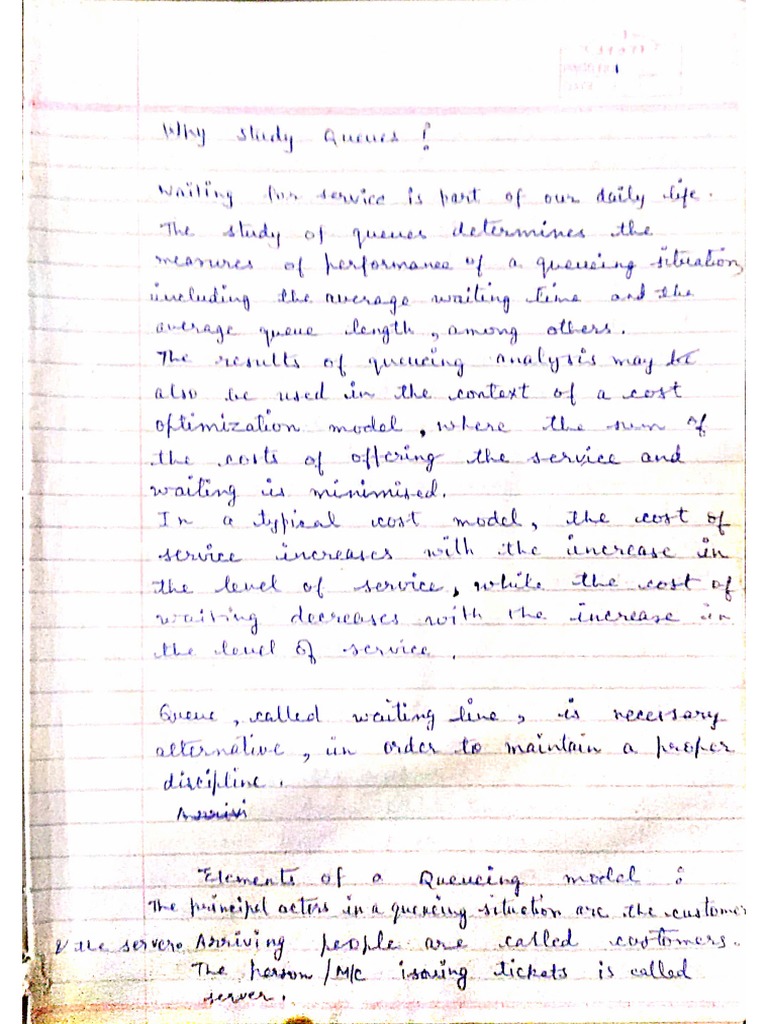 1
Why study Queues !
Waiting for service is part of our daily life.
The study of queues determines the
measures of performance of a queueing situation,
including the average waiting time and the
average queue length, among others.
The results of queueing analysis may be
also be used in the context of a cost
optimization model, where the sum of
the costs of offering the service and
waiting is minimised.
In a typical cost model, the cost of
service increases with the increase in
the level of service, while the cost of
waiting decreases with the increase in
the level of service.
Queue, called waiting line, is necessary
alternative, in order to maintain a proper
discipline.
Elements of a Queueing model :
The principal actors in a queueing situation are the customer
& the server. Arriving people are called customers.
The person/M/C issuing tickets is called
server.